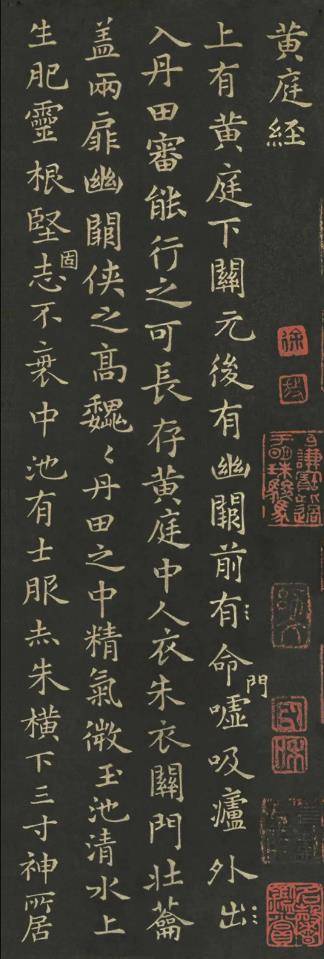 黄庭經
上有黄庭下關元後有幽闕前有命門噓吸廬外出
入丹田審能行之可長存黄庭中人衣朱衣關門壯蘥
盖兩扉幽闕俠之高魏〻丹田之中精氣微玉池清水上
生肥靈根堅固志不衰中池有士服赤朱横下三寸神所居